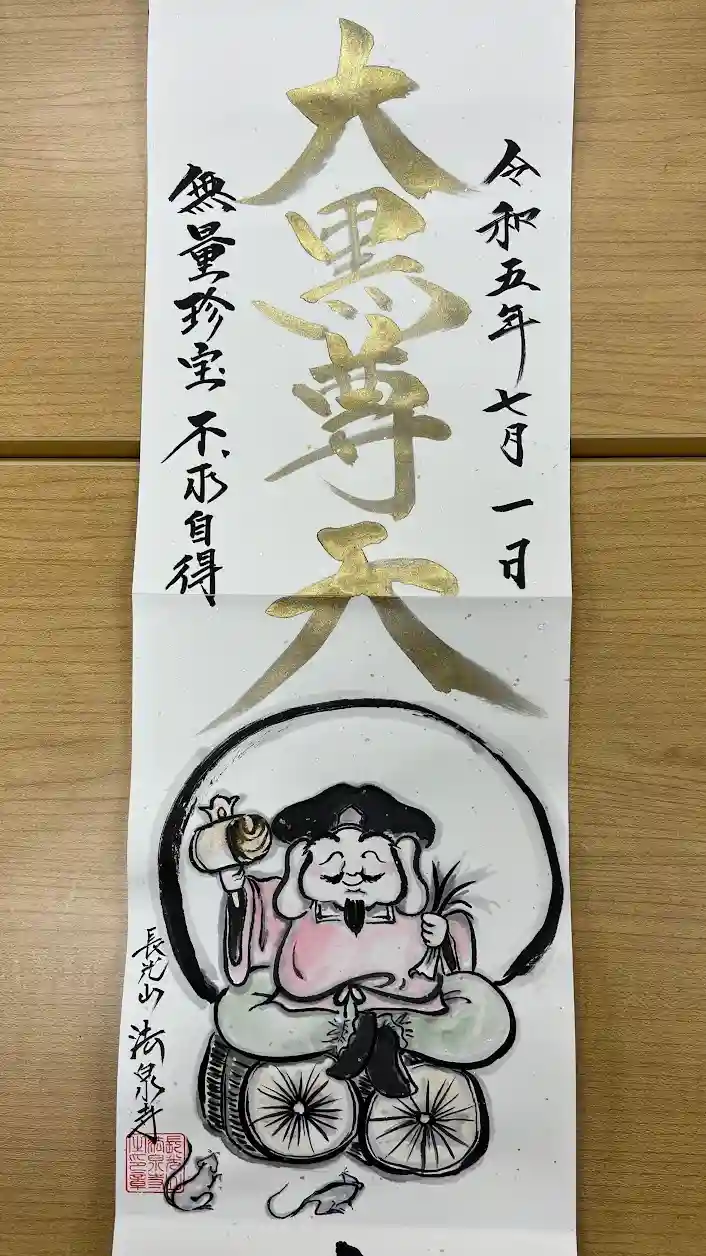 令和五年七月一日
大黒尊天
無量珍宝 不求自得
長光山 法泉寺